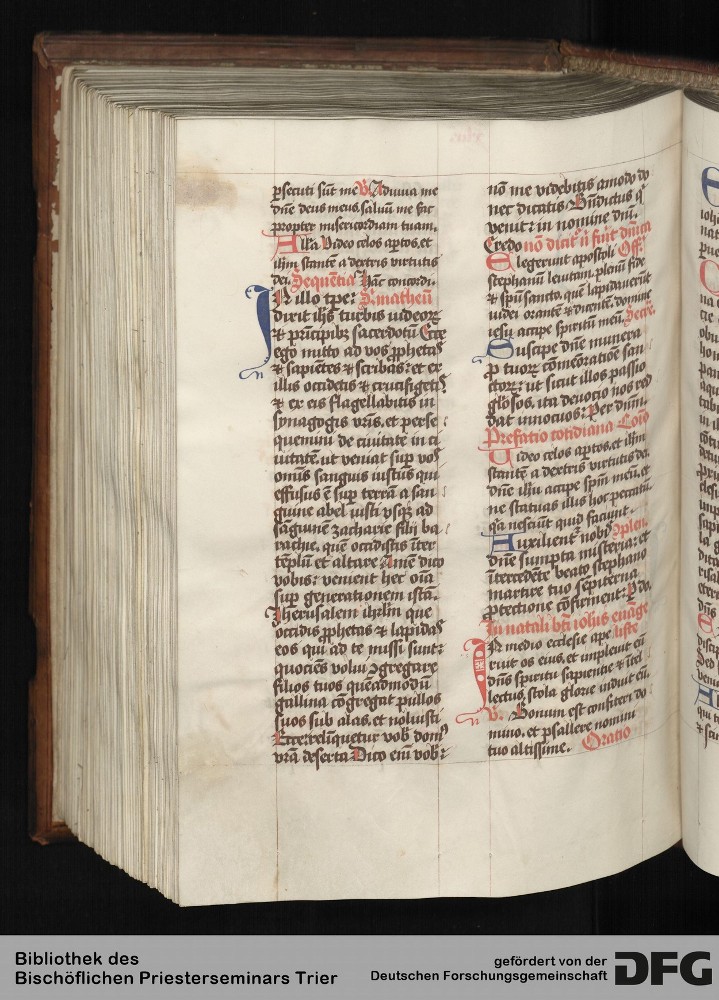 psecuti sūt me V. Adiuua me
dn̄e deus meus, saluū me fac
propter misericordiam tuam.
Alla Video celos aptos, et
ihm stantē a dextris virtutis
dei. Sequentia Hāc concordi.
IN illo tpe: S. matheū
dixit ihs turbis iudeoꝝ
et prīcipibꝫ sacerdotū Ecce
ego mitto ad vos ꝓphetas
et sapiētes et scribas: et ex
illis occidetis et crucifigetis
et ex eis flagellabitis in
synagogis vr̄is, et perse
quemini de ciuitate in ci
uitatē, ut veniat suꝑ vos
omīs sanguis iustus qui
effusus ē suꝑ terrā a san
guine abel iusti vsqꝫ ad
sāguinē zacharie filij ba
rachie, quē occidistis īter
tēplū et altare Amē dico
vobis: venient hec oīa
suꝑ generationem istā.
Jherusalem ihrlm que
occidis ꝓphetas et lapidas
eos qui ad te missi sunt:
quociēs volui ꝯgregare
filios tuos quēadmodū
gallina cōgregat pullos
suos sub alas, et noluisti
Ecce relīquetur vob domꝰ
vr̄a deserta Dico enī vob:
nō me videbitis amodo do
nec dicatis Bn̄dictus q
venit: in nomine dn̄i.
Credo nō dicit n̄ fu'it dn̄ica
Elegerunt apostoli Off.
stephanū leuitam plenū fide
et spū sancto, quē lapidauerūt
iudei orantē et dicentē, domine
iesu accipe spiritū meū. Secre.
Suscipe dn̄e munera
ꝓ tuoꝝ cōmemoratiōe san
ctoꝝ: ut sicut illos passio
gl'osos, ita deuotio nos red
dat innocuos: Per dn̄m.
Prefatio cotidiana Cōio
Video celos aptos, et ihm
stantē a dextris virtutis dei,
dn̄e ihu accipe spm̄ meū, et
ne statuas illis hoc peccatū
qa nesciūt quid faciunt.
Auxilient' nobis Cōplen.
dn̄e sumpta misteria: et
ītercedēte beato stephano
martire tuo sepiterna
ꝓtectione cōfirment: P do.
In natali bt̄i iohis euāge
IN medio ecclesie ape liste
ruit os eius, et impleuit eū
dn̄s spiritu sapientie et ītel
lectus, stola glorie induit eū.
V. Bonum est confiteri do
mino, et psallere nomini
tuo altissime. Oratio
Bibliothek des
Bischöflichen Priesterseminars Trier
gefördert von der
Deutschen Forschungsgemeinschaft
DFG